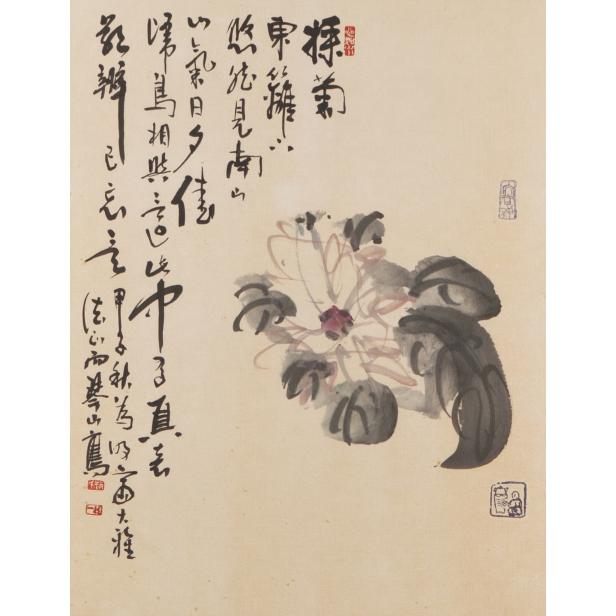 採菊
東籬下
悠然見南山
山氣日夕佳
鳥相與還此中有真意
欲辨已忘言
甲子秋為富大雅
法正雨山